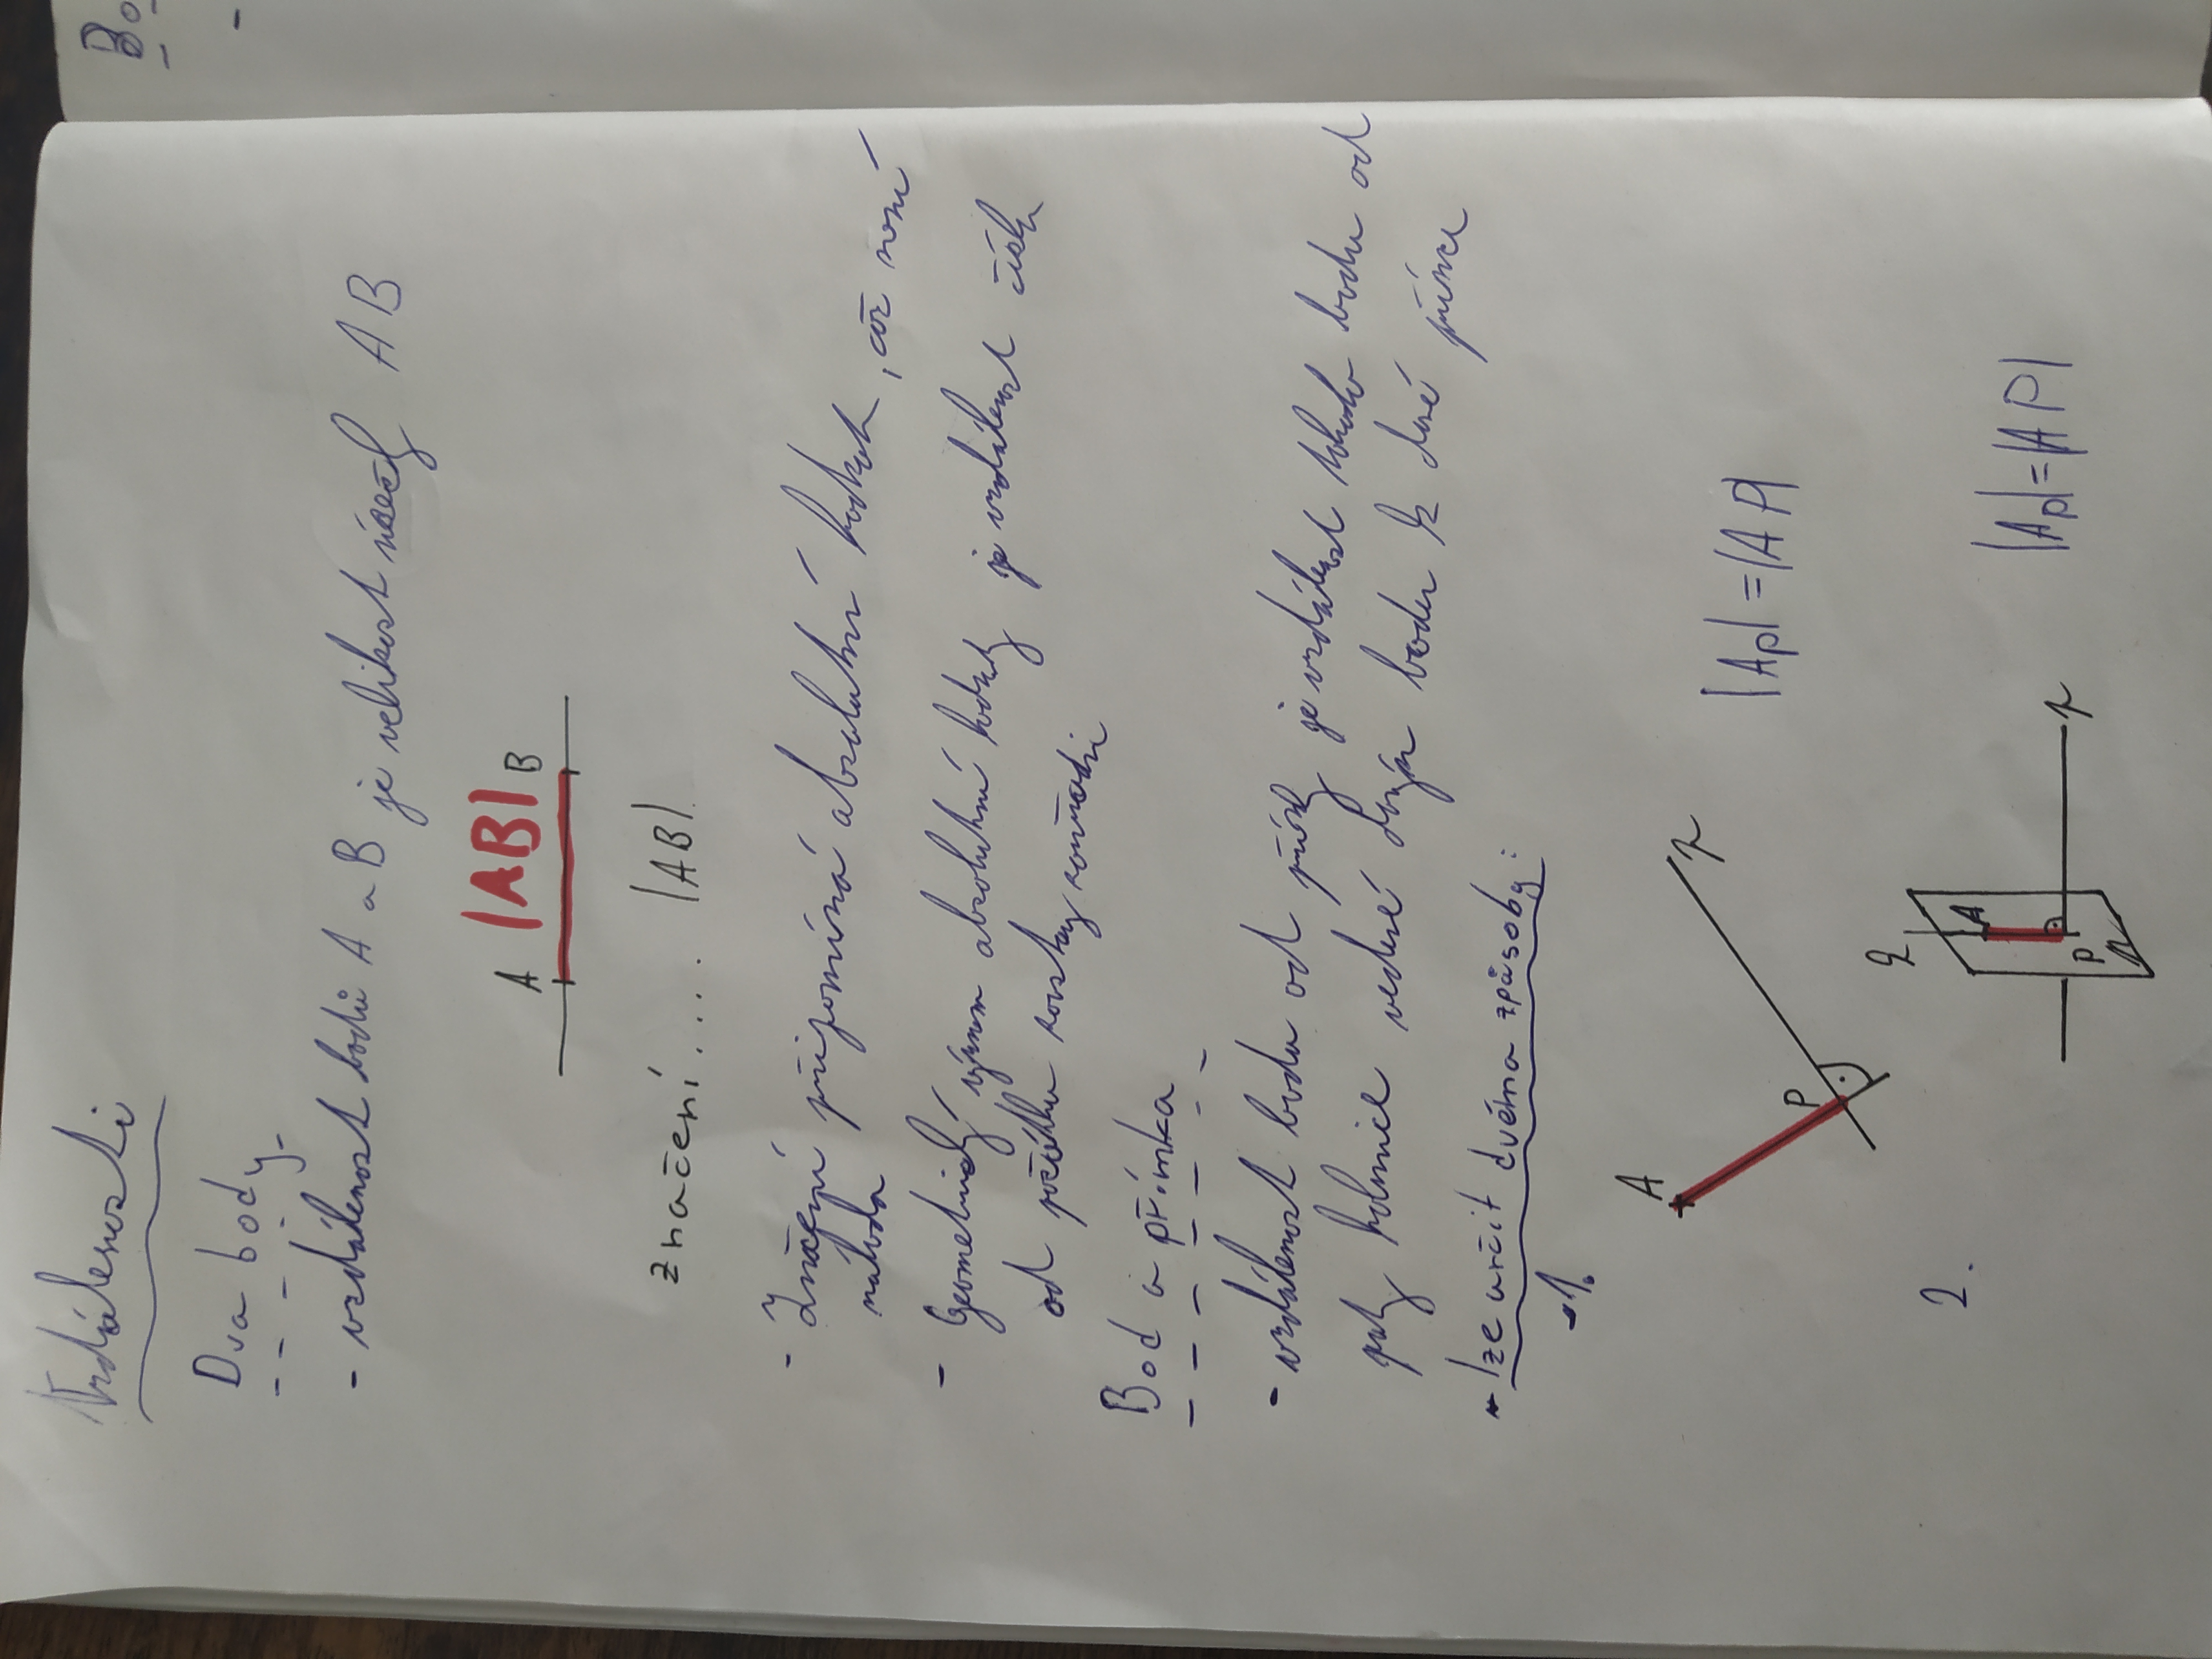 Vzdálenosti
Dva body
- vzdálenost bodů A a B je velikost úsečky AB
A |AB| B
značení.... |AB|
- Značení připomíná absolutní hodnotu, což není
náhoda
- Geometrický význam absolutní hodnoty je vzdálenost čísla
od počátku soustavy souřadnic
Bod a přímka
- vzdálenost bodu od přímky je vzdálenost tohoto bodu od
paty kolmice vedené daným bodem k dané přímce
- lze určit dvěma způsoby:
-1.
A
p
|Ap| = |AP|
P
2.
A
|Ap| = |AP|
p
P
Bo
-